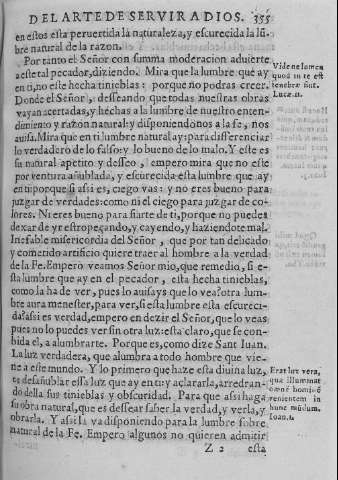 DEL ARTE DE SERVIR A DIOS. 355
en estos esta peruertida la naturaleza, y escurecida la lũ-
bre natural de la razon.
Por tanto el Señor con summa moderacion aduierte
a este tal pecador, diziendo. Mira que la lumbre que ay
en ti, no este hecha tinieblas: porque no podras creer.
Donde el Señor, desseando que todas nuestras obras
vayan acertadas, y hechas a la lumbre de nuestro enten-
dimiento y razon natural: y disponiendonos a la fe, nos
auisa. Mira que en ti lumbre natural ay: para differenciar
lo verdadero de lo falso: y lo bueno de lo malo. Y este es
su natural apetito y desseo, empero mira que no este
por ventura añublada, y escurecida esta lumbre que ay
en ti: porque si assi es, ciego vas: y no eres bueno para
juzgar de verdades: como ni el ciego para juzgar de co-
lores. Ni eres bueno para fiarte de ti, porque no puedes
dexar de yr estropeçando, y cayendo, y haziendote mal.
Inefable misericordia del Señor, que por tan delicado
y comedido artificio quiere traer al hombre a la verdad
de la Fe. Empero veamos Señor mio, que remedio, si e-
sta lumbre que ay en el pecador, esta hecha tinieblas,
como la ha de ver, pues lo auisays que lo vea? otra lum-
bre aura menester, para ver, si esta lumbre esta escureci-
da? assi es verdad, empero en dezir el Señor, que lo veas
pues no lo puedes ver sin otra luz: esta claro, que se con-
bida el, a alumbrarte. Porque es, como dize Sant Iuan.
La luz verdadera, que alumbra a todo hombre que vie-
ne a este mundo. Y lo primero que haze esta diuina luz,
es desañublar essa luz que ay en ti: y aclararla, arredran-
do della sus tinieblas y obscuridad. Para que assi haga
su obra natural, que es dessear saber la verdad, y verla, y
obrarla. Y assi la va disponiendo para la lumbre sobre
natural de la Fe. Empero algunos no quieren admitir
Z 2 esta
Vide ne lumen
quod in te est
tenebre sint.
Lucæ. 11.
Erat lux vera,
qua illuminat
omnẽ hominẽ
venientem in
hunc mũdum.
Ioan. 1.